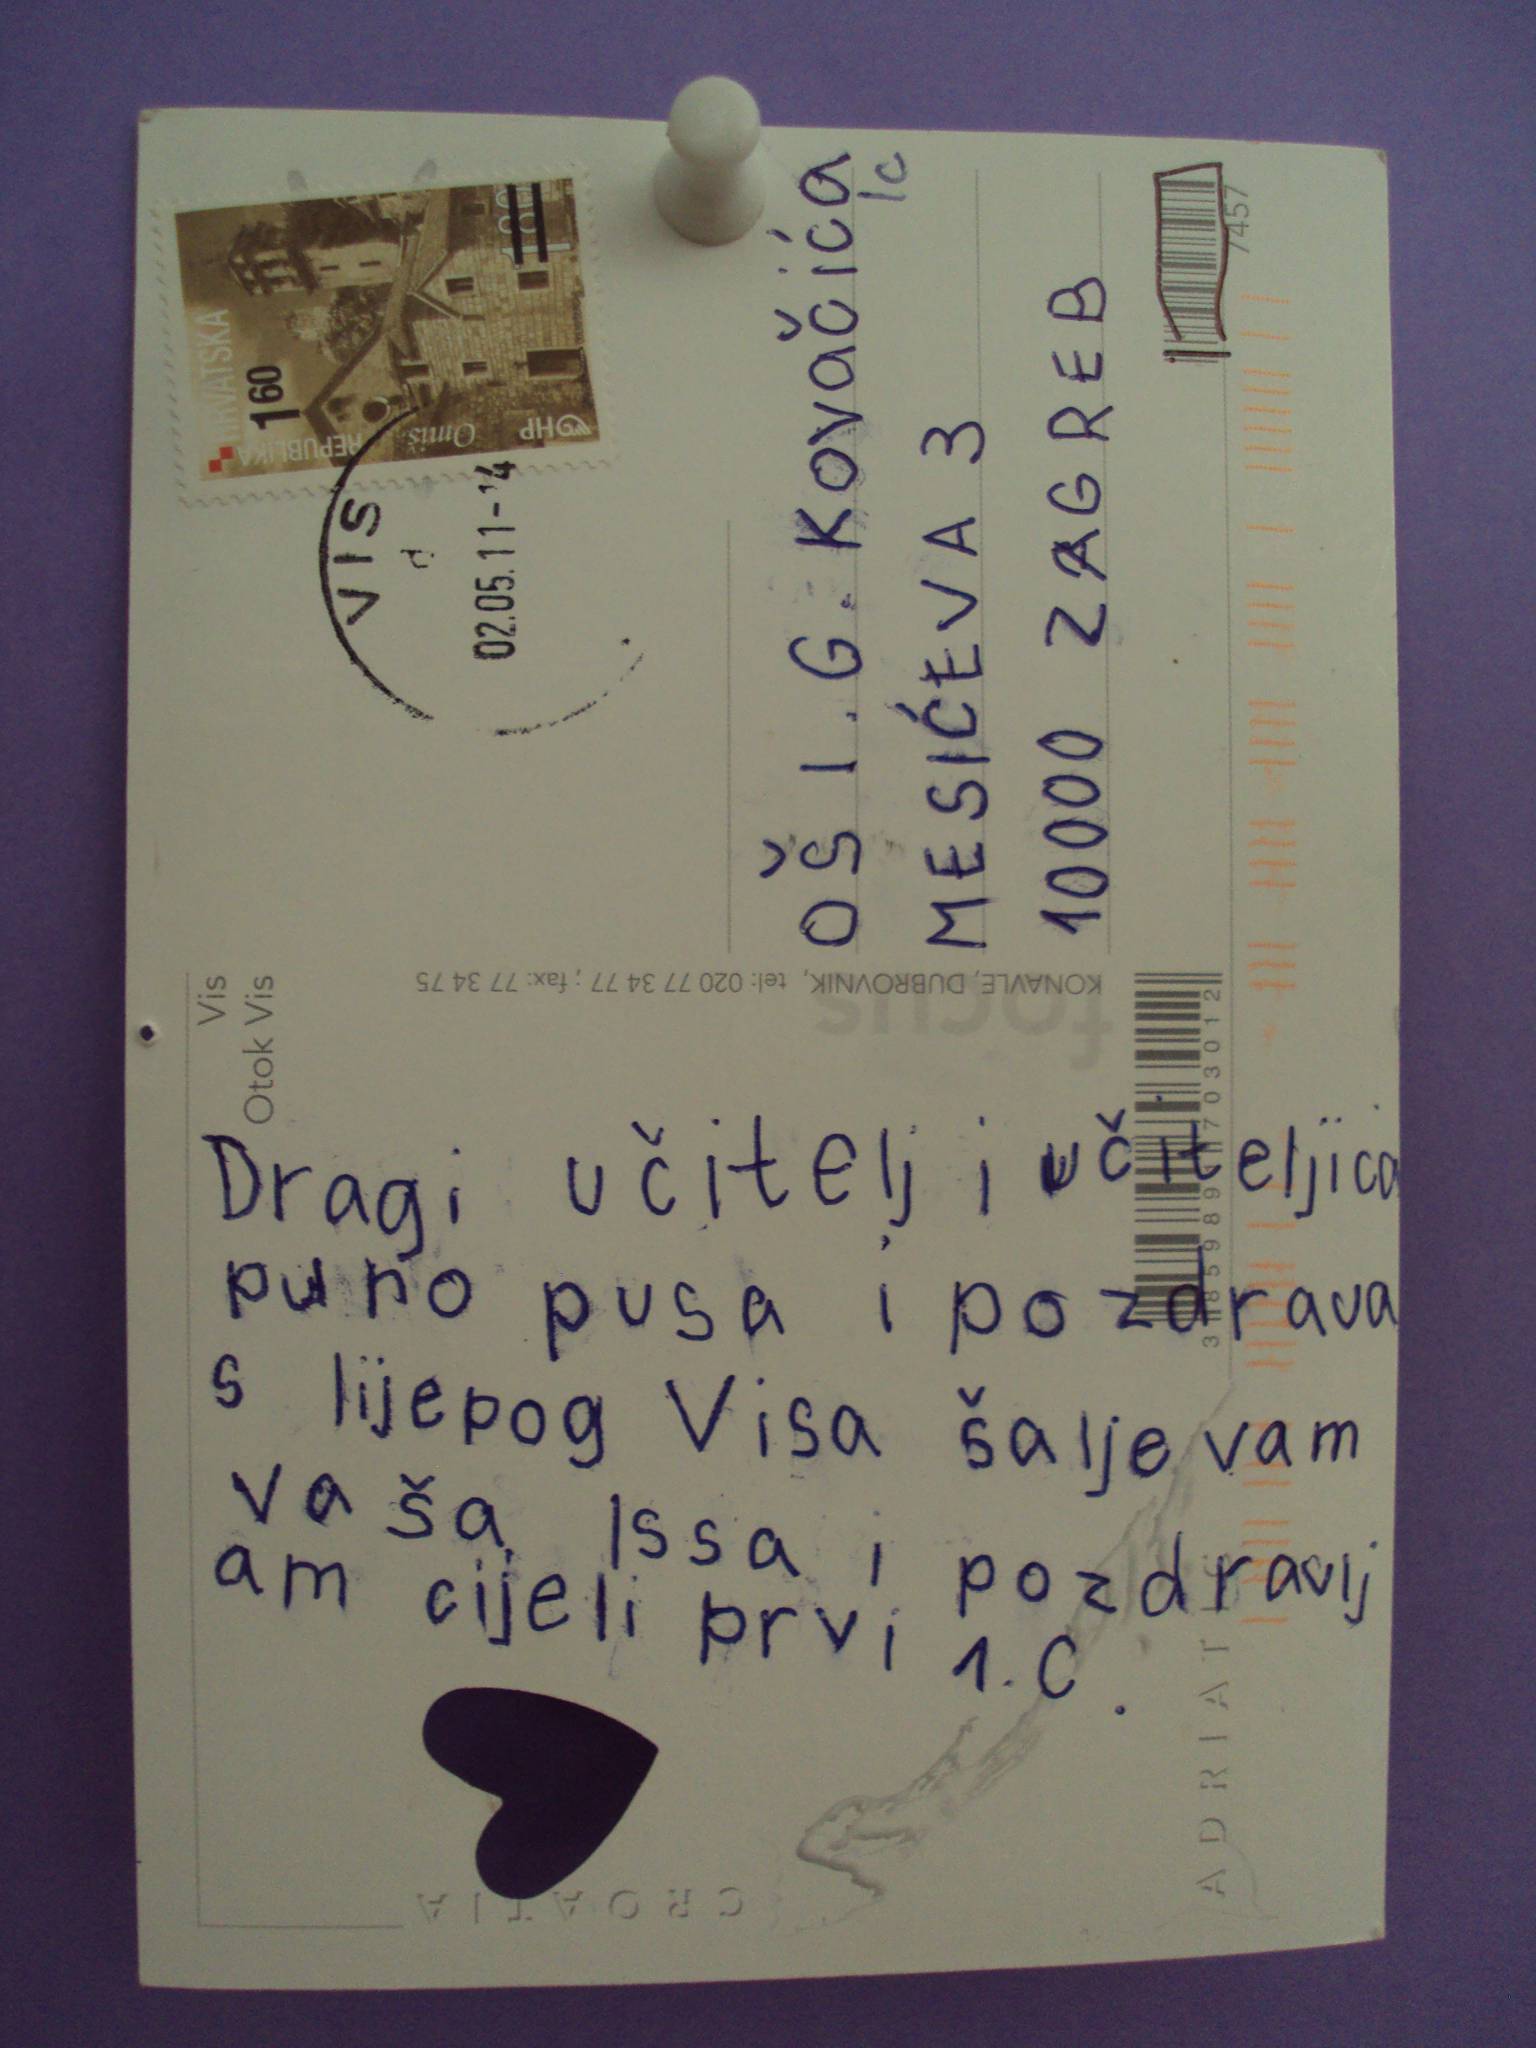 REPUBLIKA HRVATSKA
1,60
1,80
Omiš
HP
VIS
d
02.05.11-14
OŠ I. G. Kovačića
1c
MESIĆEVA 3
10000 ZAGREB
7457
Vis
Otok Vis
KONAVLE, DUBROVNIK, tel: 020 77 34 77 ; fax: 77 34 75
focus
3 859891 703012
Dragi učitelj i učiteljica
puno pusa i pozdrava
s lijepog Visa šalje vam
vaša Issa i pozdravlj
am cijeli prvi 1. C.
CROATIA